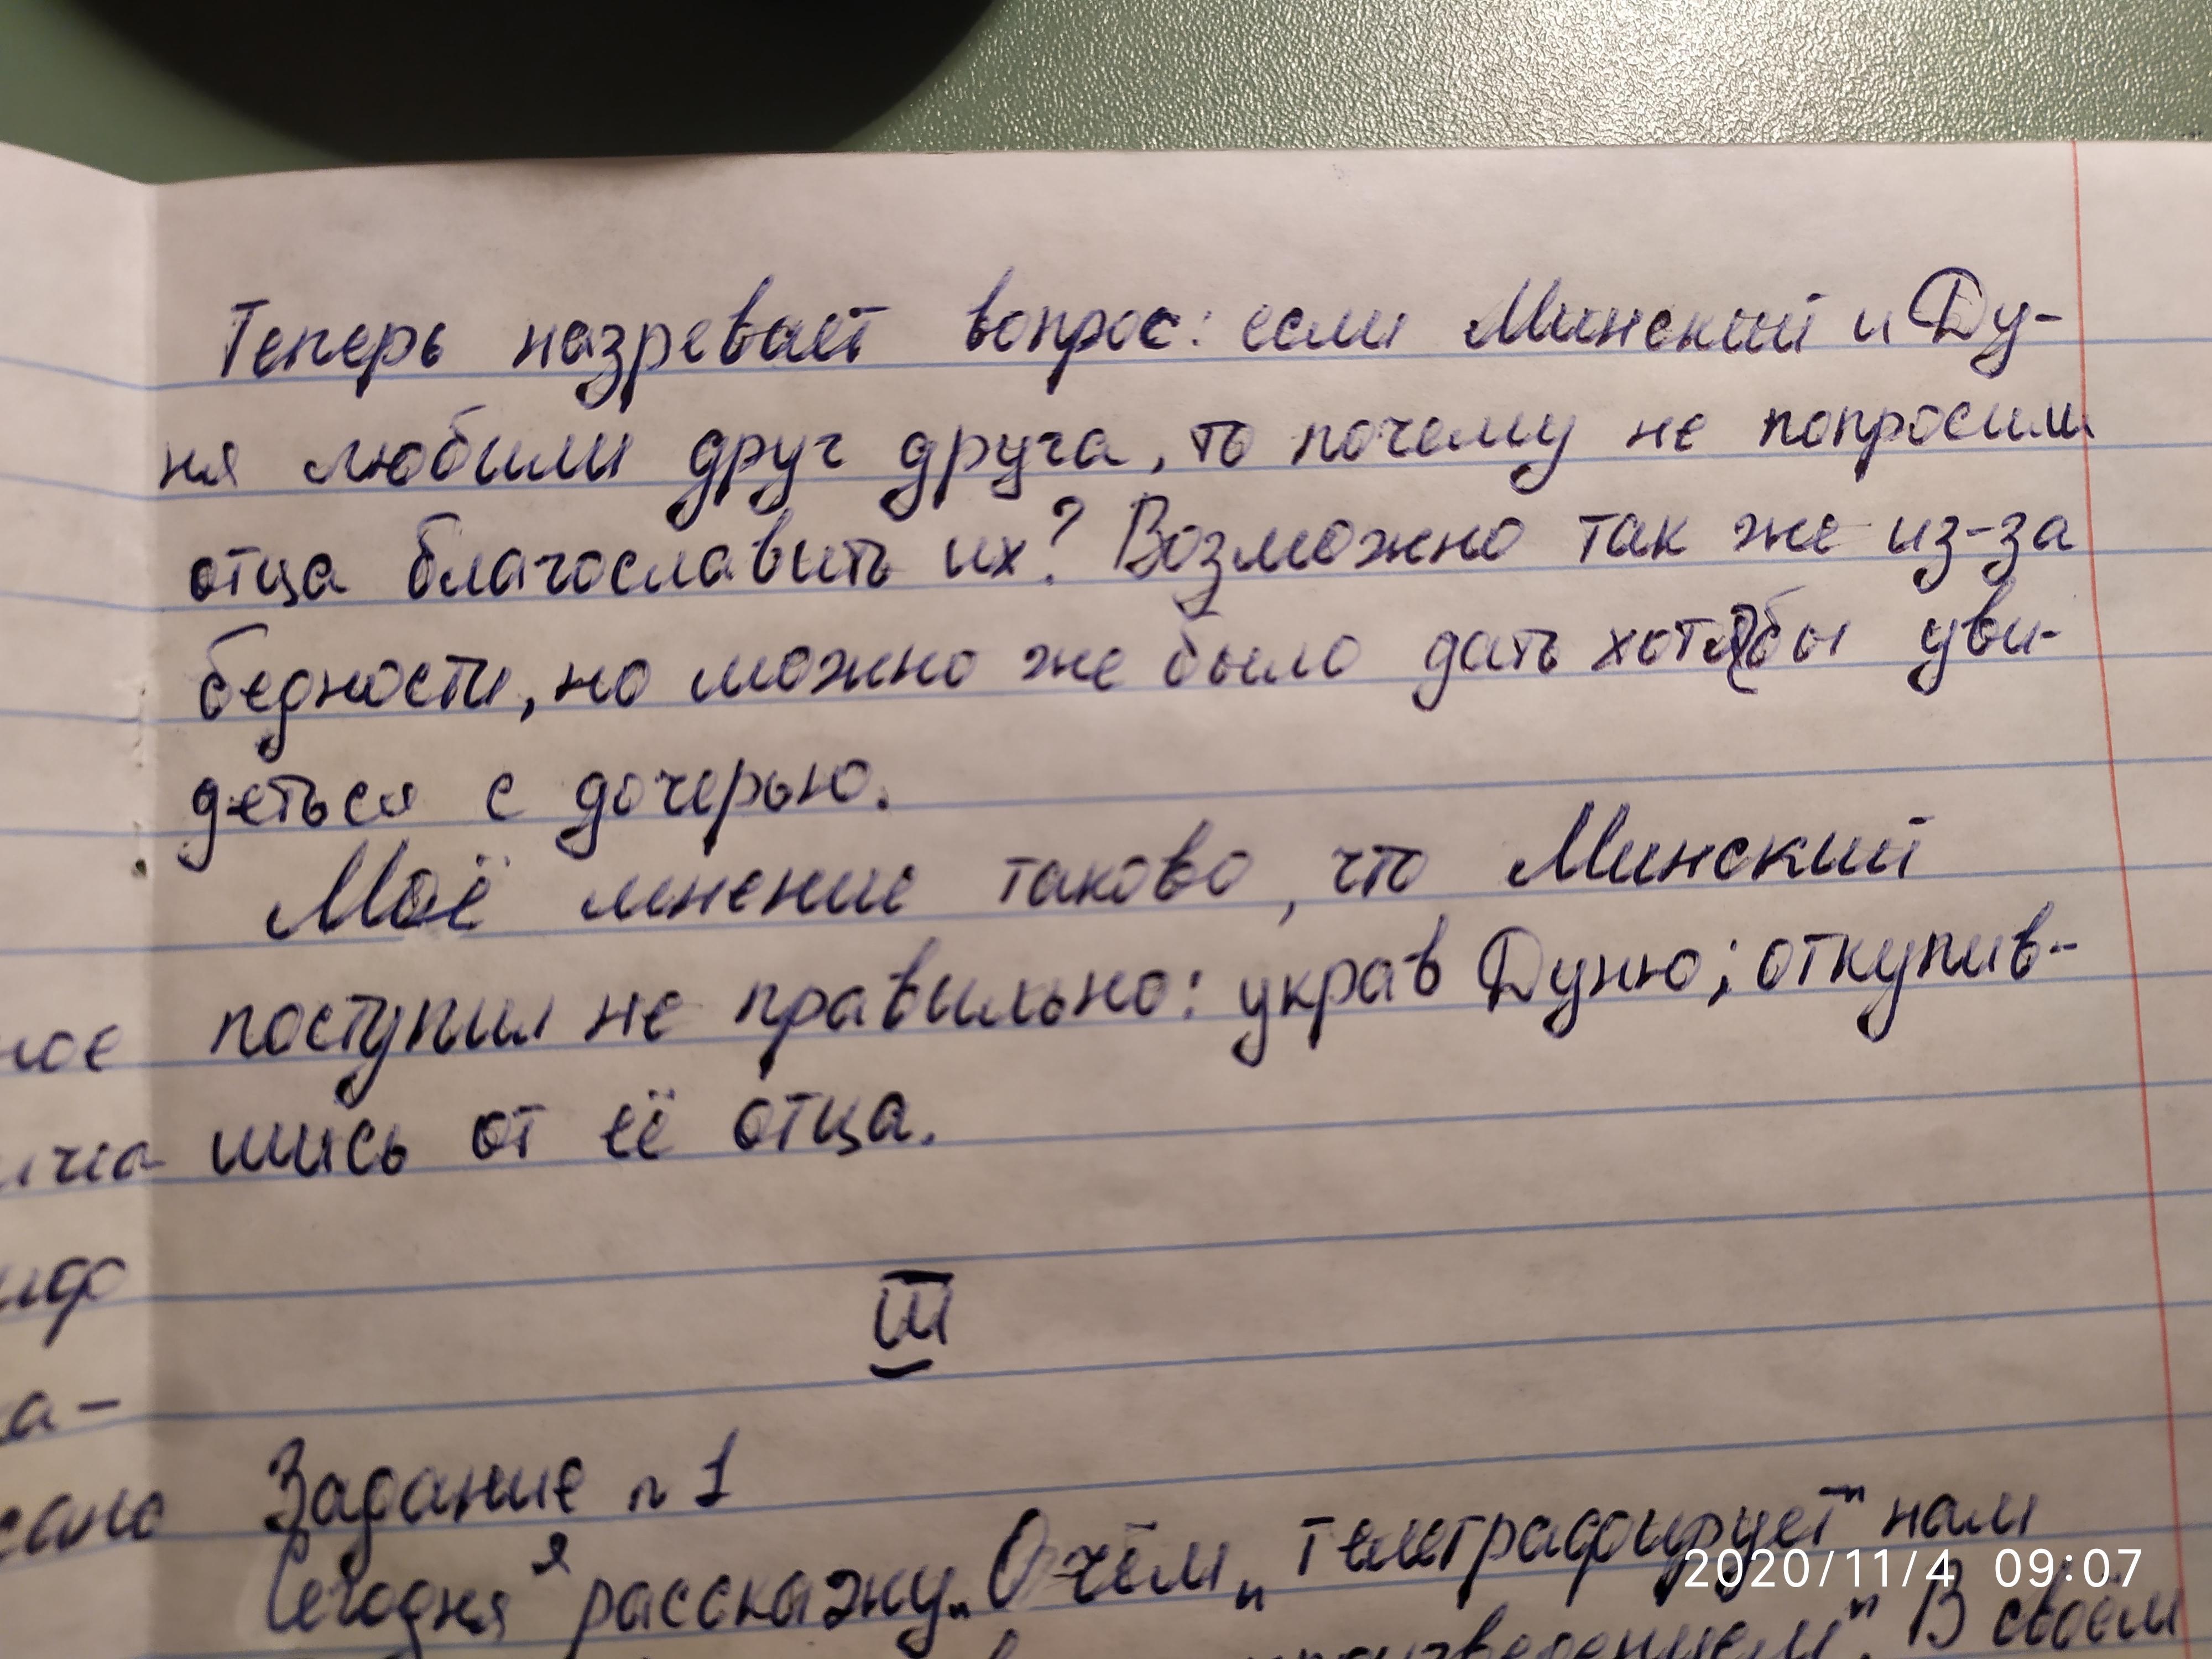 Теперь назревает вопрос: если Минский и Ду-
ня любили друг друга, то почему не попросили
отца благославить их? Возможно так же из-за
бедности, но можно же было дать хотя бы уви-
деться с дочерью.
Моё мнение таково, что Минский
поступил не правильно: украв Дуню; откупив-
шись от её отца.
III
Задание n 1
Сегодня я расскажу „О чём „телеграфирует" нам
произведением". В своём
2020/11/4 09:07